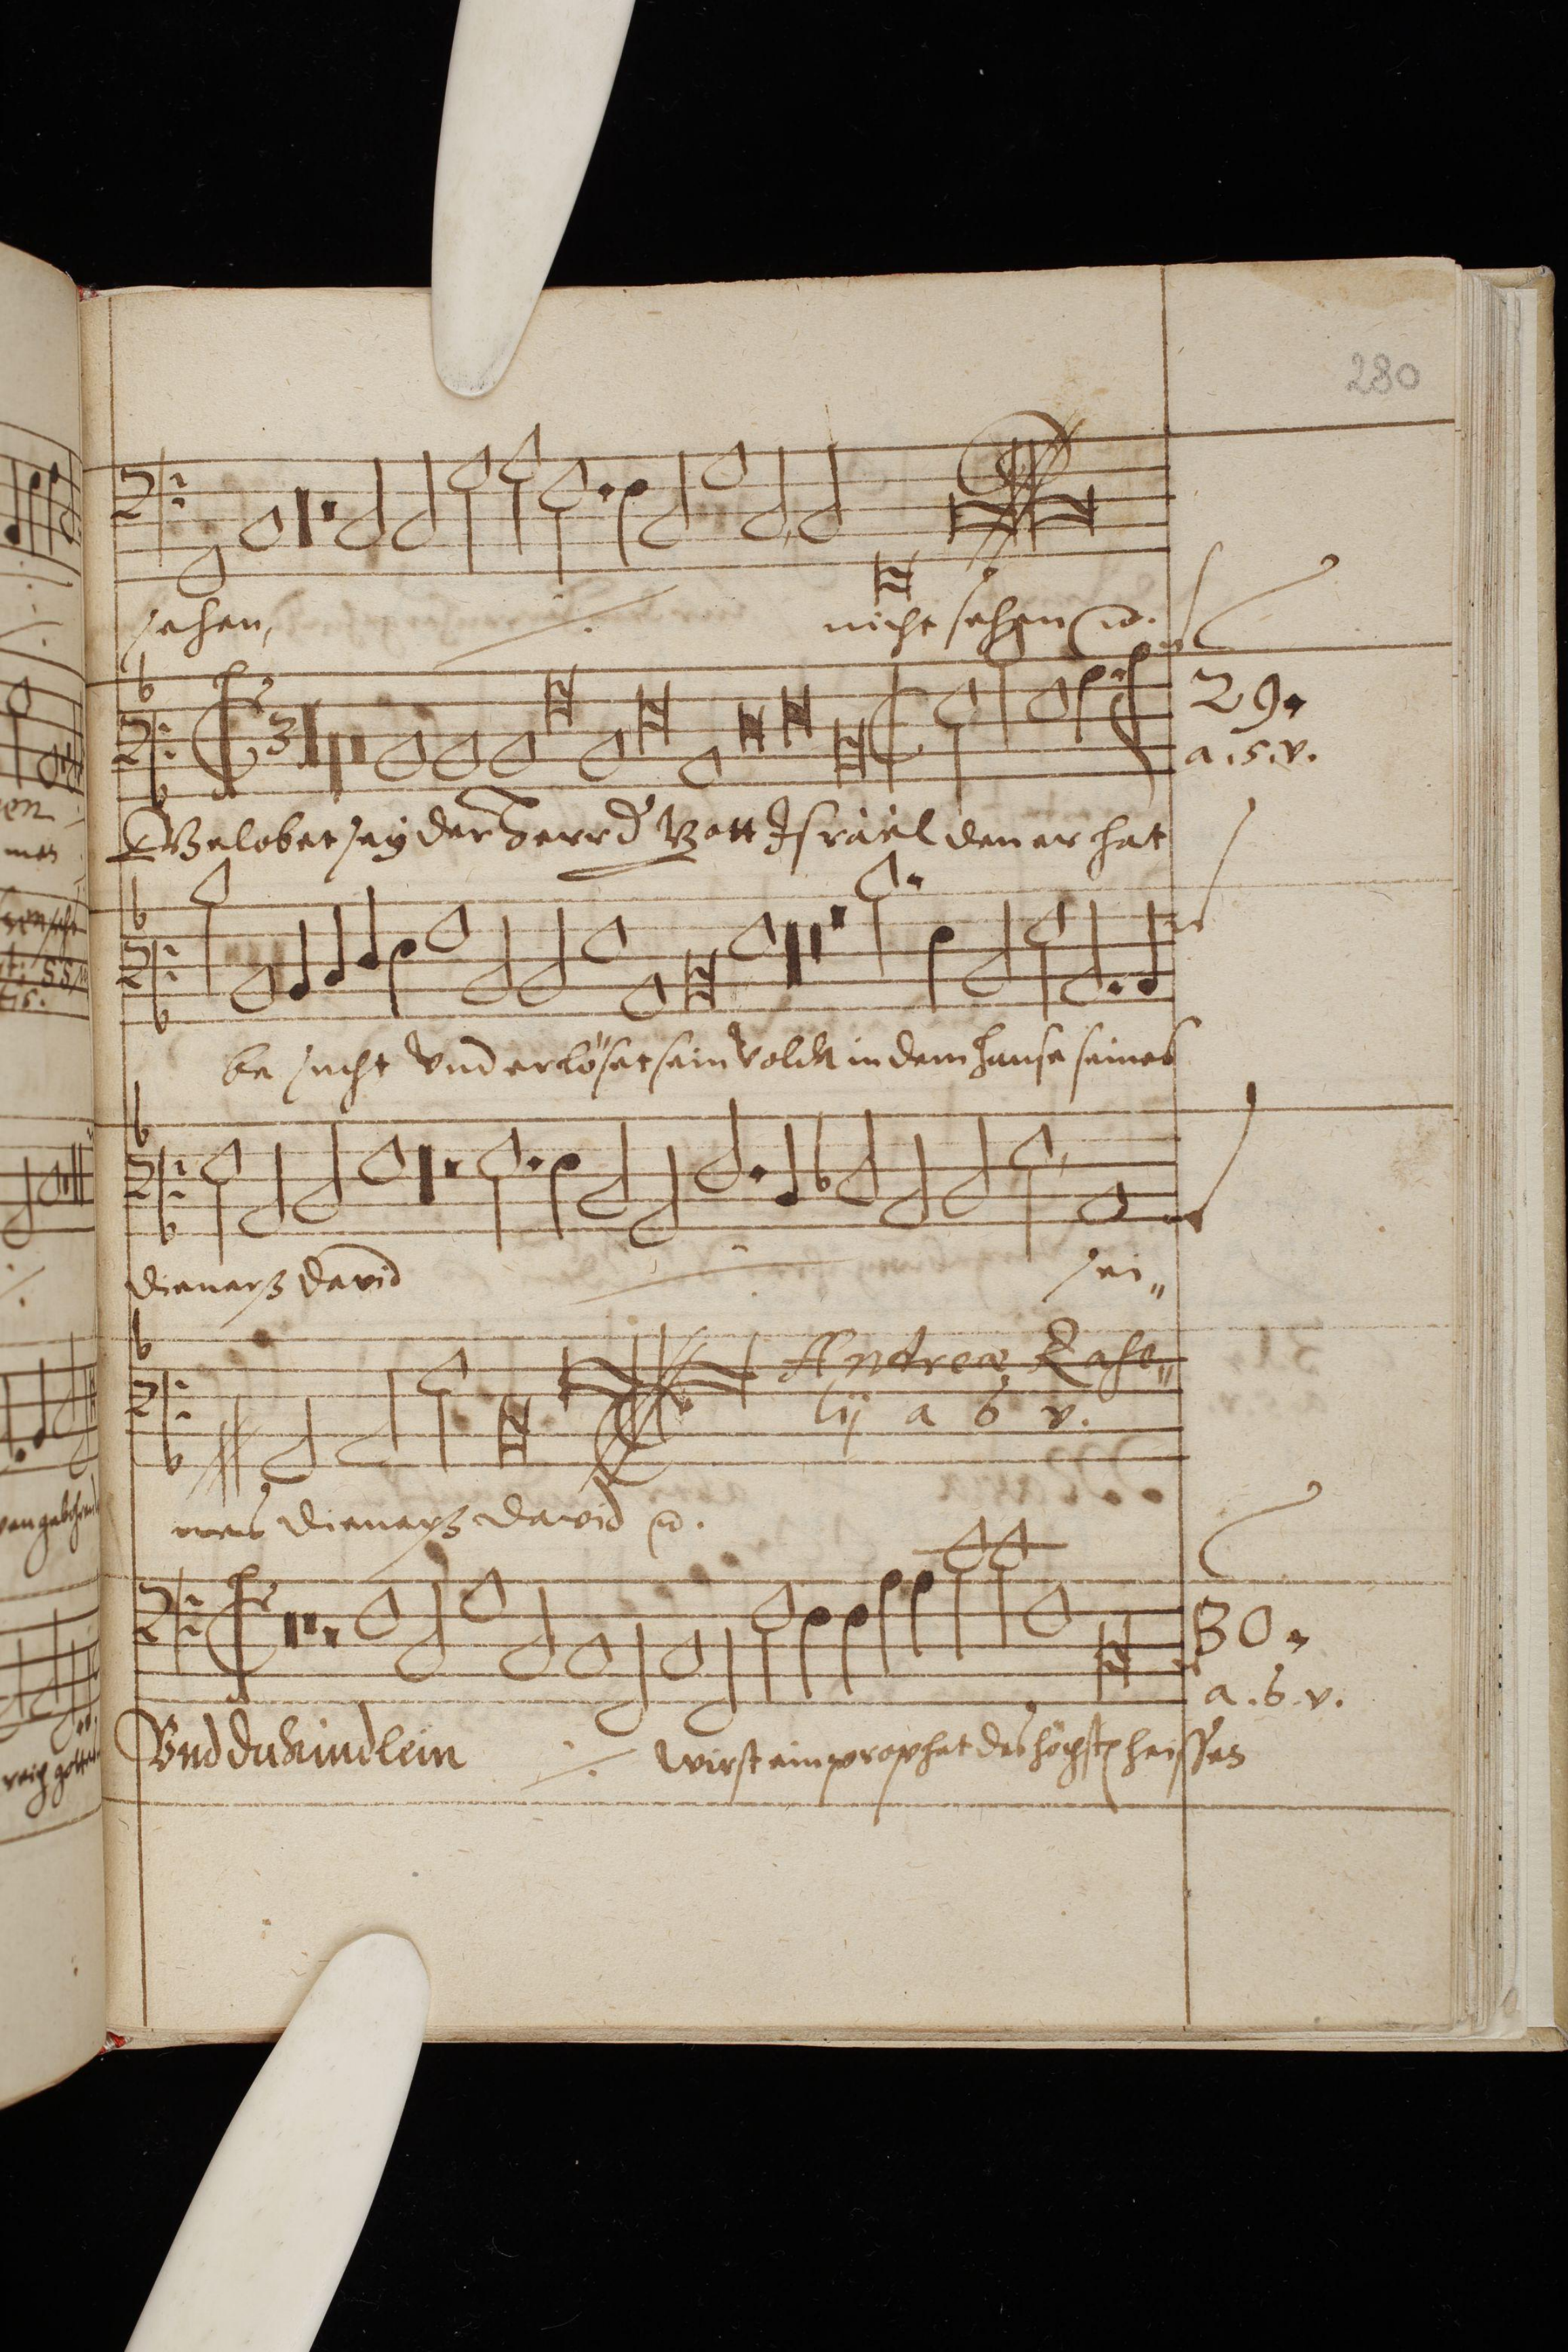 280
sehen, nicht sehen
29.
a.5.v.
Gelobet sey der Herr d' Gott Israël den er hat
be sucht Vnd erlöset sein Volck in dem hause seines
Dieners David sei„
Andreæ Rase„
lij a 6 v.
nes Dieners David
30.
a.6.v.
Vnd du kindlein wirst ein prophet des höchst heissen